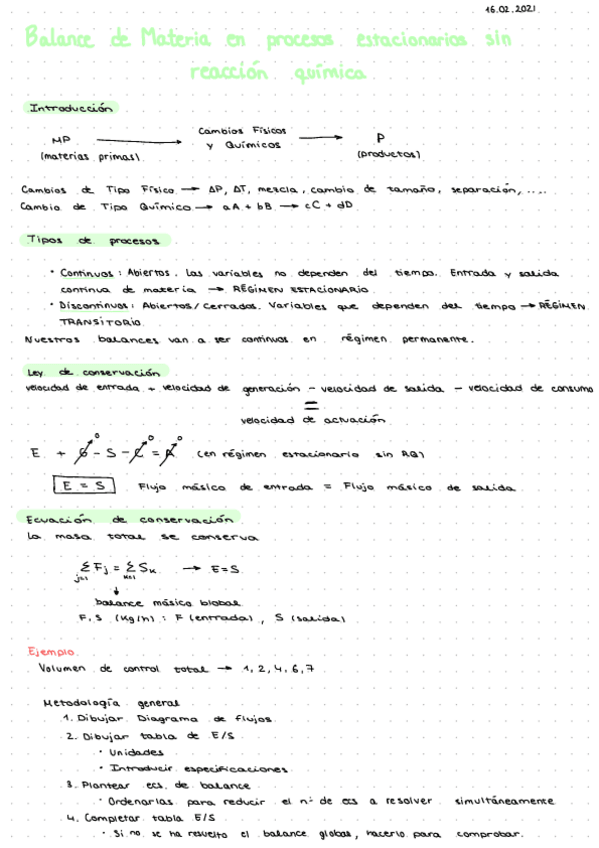 16.02.2021
Balance de Materia en procesos estacionarios sin
reacción química
Introducción
MP → Cambios Físicos y Químicos → P
(materias primas) (productos)
Cambios de Tipo Físico → ΔP, ΔT, mezcla, cambio de tamaño, separación, ....
Cambio de Tipo Químico → aA + bB → cC + dD
Tipos de procesos
· Continuos: Abiertos. Las variables no dependen del tiempo. Entrada y salida
continua de materia → RÉGIMEN ESTACIONARIO
· Discontinuos: Abiertos/Cerrados. Variables que dependen del tiempo → RÉGIMEN
TRANSITORIO
Nuestros balances van a ser continuos en régimen permanente.
Ley de conservación
velocidad de entrada + velocidad de generación - velocidad de salida - velocidad de consumo
=
velocidad de actuación
E + G⁰ - S - C⁰ = A⁰ (en régimen estacionario sin RQ)
E = S Flujo másico de entrada = Flujo másico de salida
Ecuación de conservación
La masa total se conserva
Σ Fj = Σ Sk → E=S
j=1 k=1
↓
balance másico global
F, S (kg/h) : F (entrada), S (salida)
Ejemplo
Volumen de control total → 1, 2, 4, 6, 7
Metodología general
1. Dibujar Diagrama de flujos
2. Dibujar tabla de E/S
· Unidades
· Introducir especificaciones
3. Plantear ecs. de balance
· Ordenarlas para reducir el nº de ecs a resolver simultáneamente
4. Completar tabla E/S
· Si no se ha resuelto el balance global, hacerlo para comprobar.